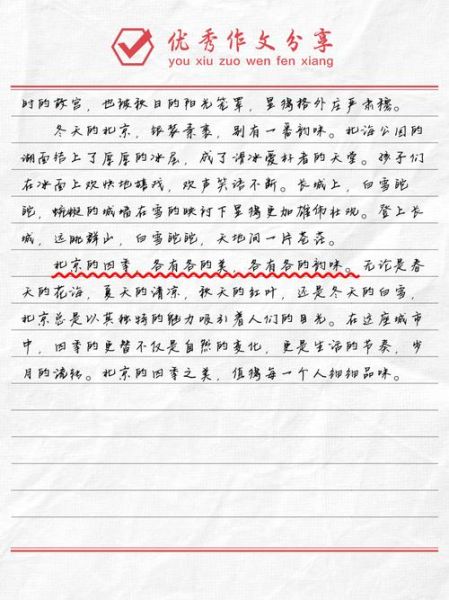 优秀作文分享
you xiu zuo wen fen xiang
时的故宫，也被秋日的阳光笼罩，显得格外庄严肃穆。
冬天的北京，银装素裹，别有一番韵味。北海公园的
湖面结上了厚厚的冰层，成了滑冰爱好者的天堂。孩子们
在冰面上欢快地嬉戏，欢声笑语不断。长城上，白雪皑
皑，蜿蜒的城墙在雪的映衬下显得更加雄伟壮观。登上长
城，远眺群山，白雪皑皑，天地间一片苍茫。
北京的四季，各有各的美，各有各的韵味。无论是春
天的花海，夏天的清凉，秋天的红叶，还是冬天的白雪，
北京总是以其独特的魅力吸引着人们的目光。在这座城市
中，四季的更替不仅是自然的变化，更是生活的节奏，岁
月的流转。北京的四季之美，值得每一个人细细品味。